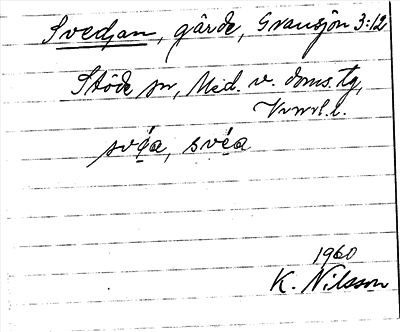 Svedjan, gärde, Gransjön 3:12
Stöde sn, Med. v. doms. tg,
Vnrl. l.
svéa, svéa
1960
K. Nilsson